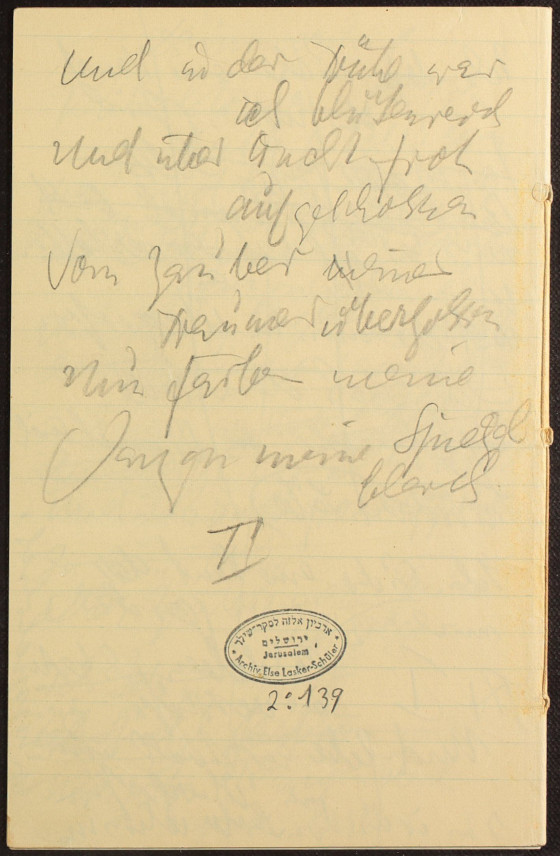 Und in der Frühe war
ich blütenreich
Und über Nacht froh
aufgeschossen
Vom Zauber meiner
Träume übergossen
Nun färben meine
Wangen meine Spiegel
bleich
II
ארכיון אלזה לסקר-שילר
ירושלים
Jerusalem
Archiv Else Lasker-Schüler
2:139